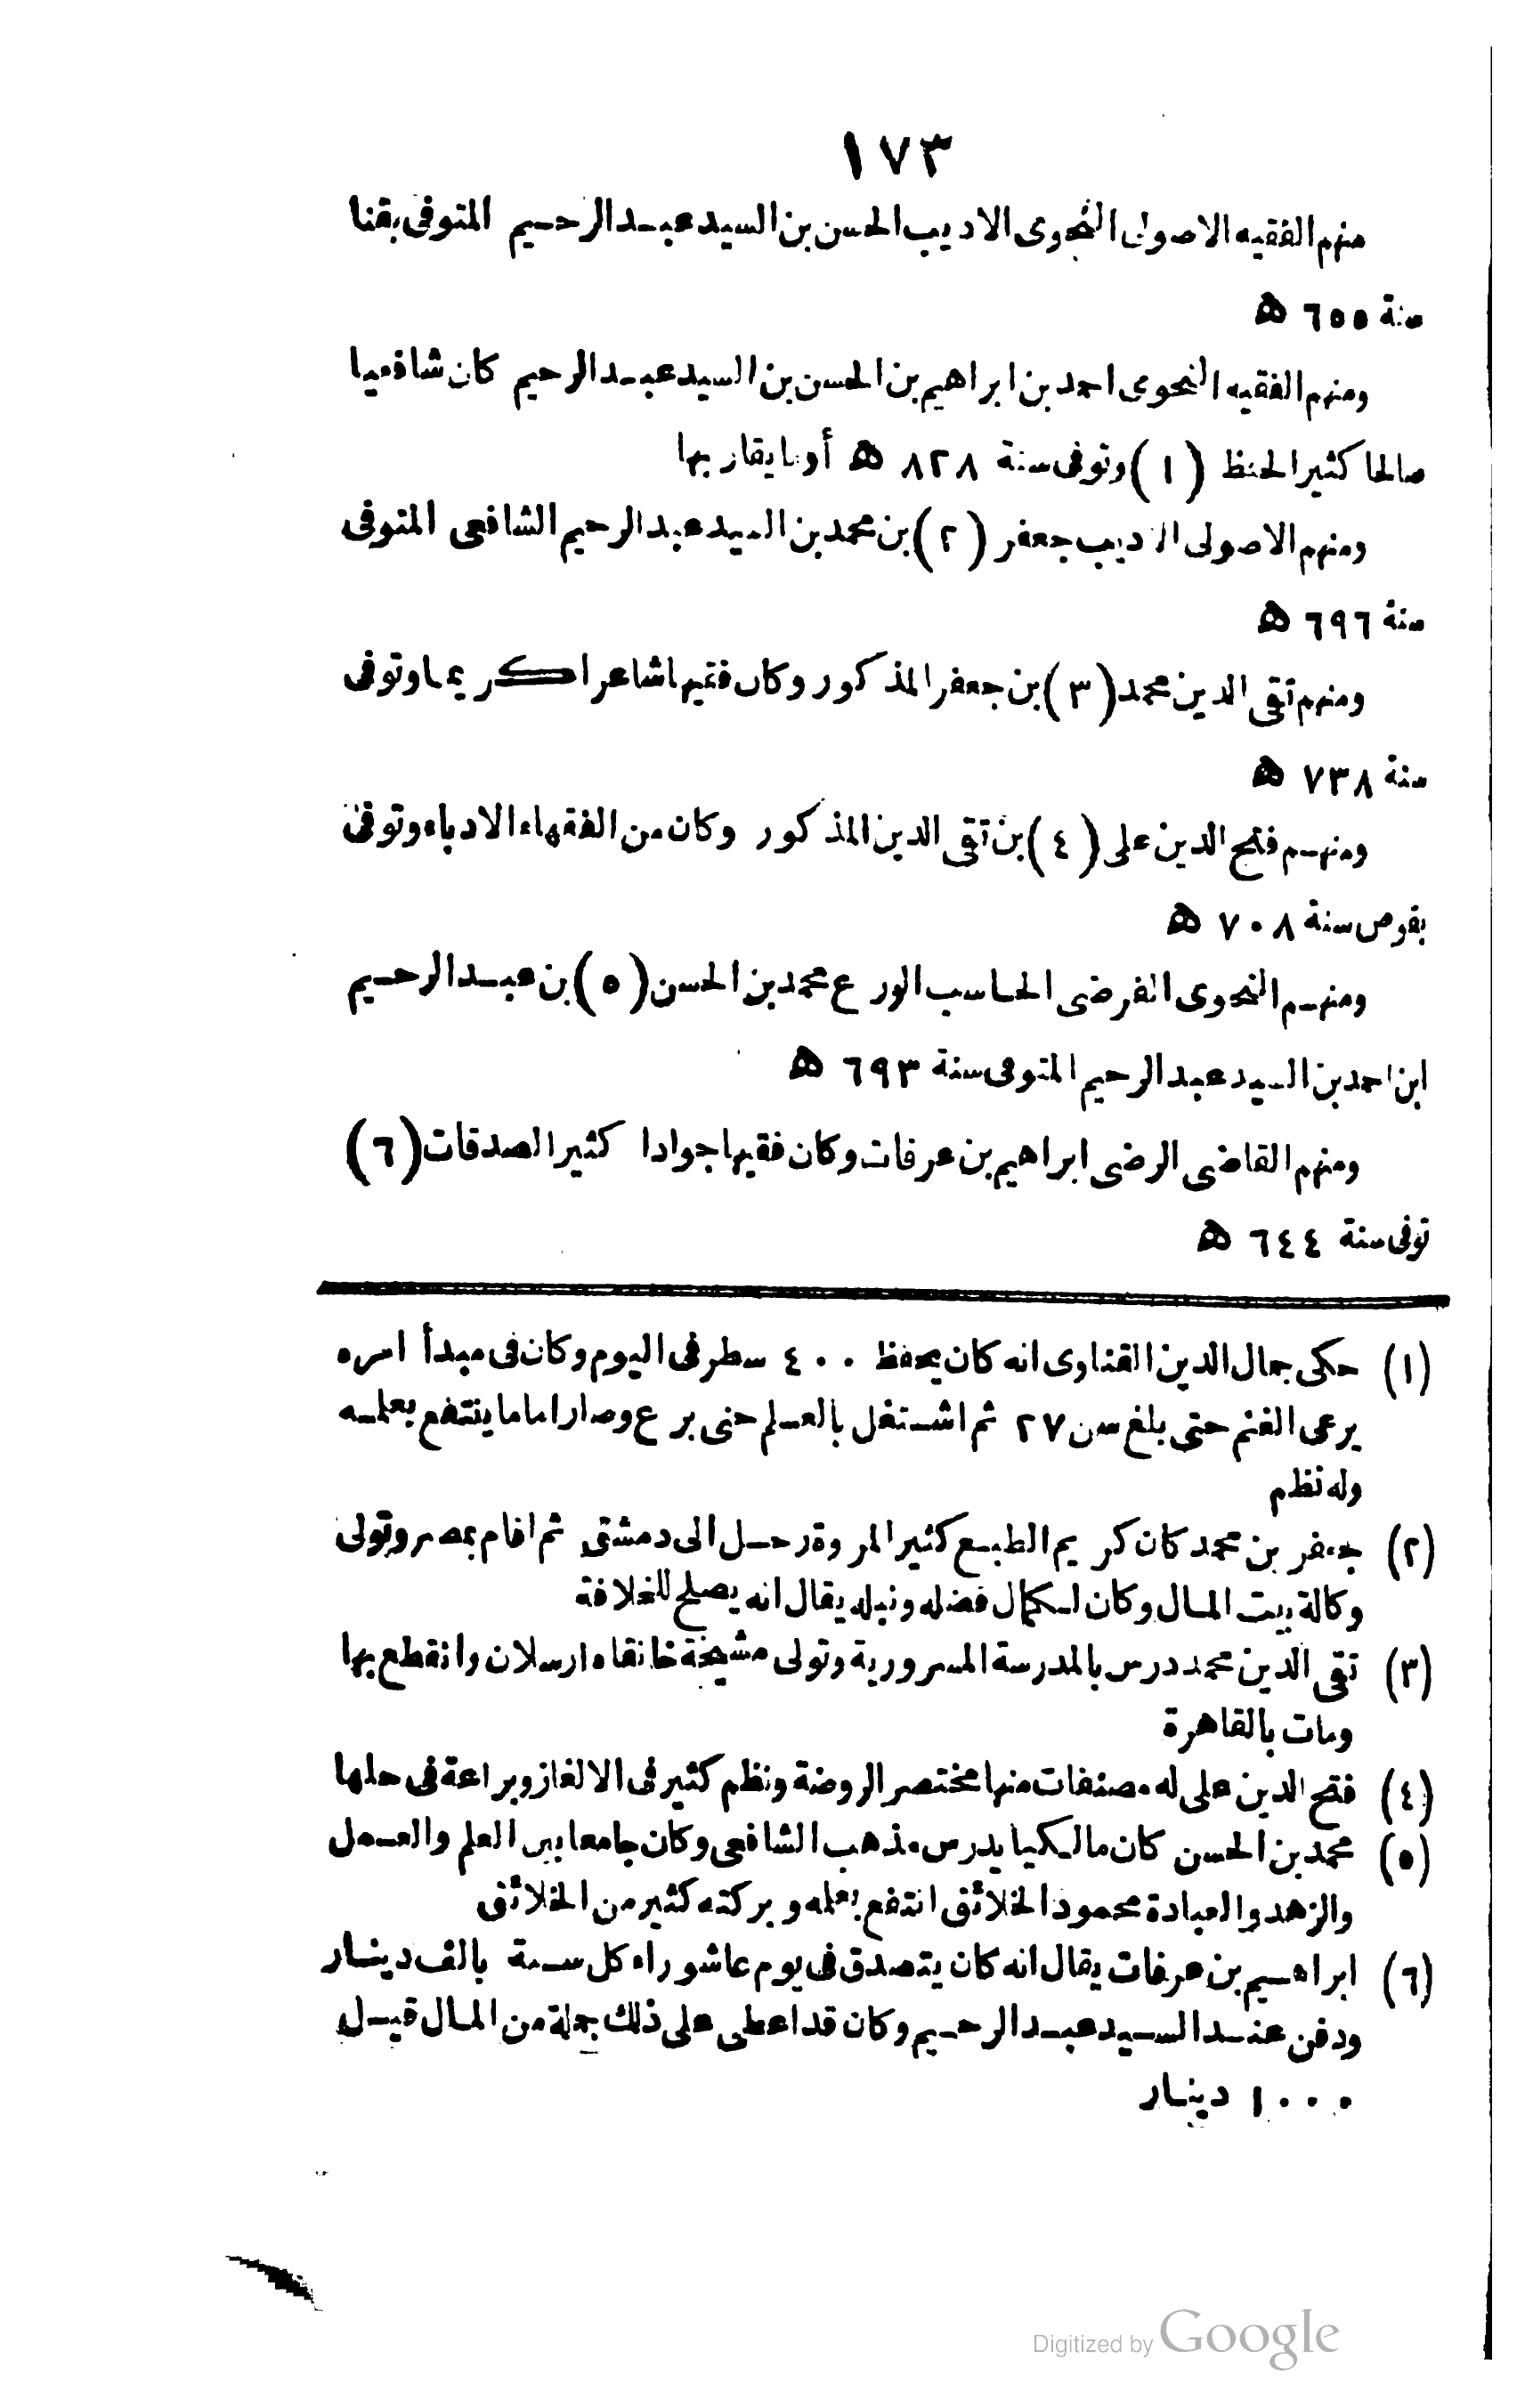 ١٧٣
منهم الفقيه الاصولى النحوى الاديب الحسن بن السيد عبد الرحيم المتوفى بقنا
سنة ٦٥٥ ه
ومنهم الفقيه النحوى احمد بن ابراهيم بن الحسن بن السيد عبد الرحيم كان شافعيا
صالحا كثير الحفظ (١) وتوفى سنة ٨٢٨ ه أو ما يقاربها
ومنهم الاصولى الاديب جعفر (٢) بن محمد بن السيد عبد الرحيم الشافعى المتوفى
سنة ٦٩٦ ه
ومنهم تقى الدين محمد (٣) بن جعفر المذكور وكان فقيها شاعرا كريما وتوفى
سنة ٧٣٨ ه
ومنهم فتح الدين على (٤) بن تقى الدين المذكور وكان من الفقهاء الادباء وتوفى
بقوص سنة ٧٠٨ ه
ومنهم النحوى الفرضى الحاسب الورع محمد بن الحسن (٥) بن عبد الرحيم
ابن احمد بن السيد عبد الرحيم المتوفى سنة ٦٩٣ ه
ومنهم القاضى الرضى ابراهيم بن عرفات وكان فقيها جوادا كثير الصدقات (٦)
توفى سنة ٦٤٤ ه
(١) حكى جمال الدين القناوى انه كان يحفظ ٤٠٠ سطر فى اليوم وكان فى مبدأ امره
يرعى الغنم حتى بلغ سن ٢٧ ثم اشتغل بالعلم حتى برع وصار اماما ينتفع بعلمه
وله نظم
(٢) جعفر بن محمد كان كريم الطبع كثير المروة رحل الى دمشق ثم اقام بمصر وتولى
وكالة بيت المال وكان لكمال فضله ونبله يقال انه يصلح للخلافة
(٣) تقى الدين محمد درس بالمدرسة المسرورية وتولى مشيخة خانقاه ارسلان وانقطع بها
ومات بالقاهرة
(٤) فتح الدين على له مصنفات منها مختصر الروضة ونظم كثير فى الالغاز وبراعة فى حلها
(٥) محمد بن الحسن كان مالكيا يدرس مذهب الشافعى وكان جامعا بين العلم والعمل
والزهد والعبادة محمود الخلائق انتفع بعلمه وبركته كثير من الخلائق
(٦) ابراهيم بن عرفات يقال انه كان يتصدق فى يوم عاشوراء كل سنة بالف دينار
ودفن عند السيد عبد الرحيم وكان قد اعطى على ذلك جملة من المال قيل
١٠٠٠ دينار
Digitized by Google